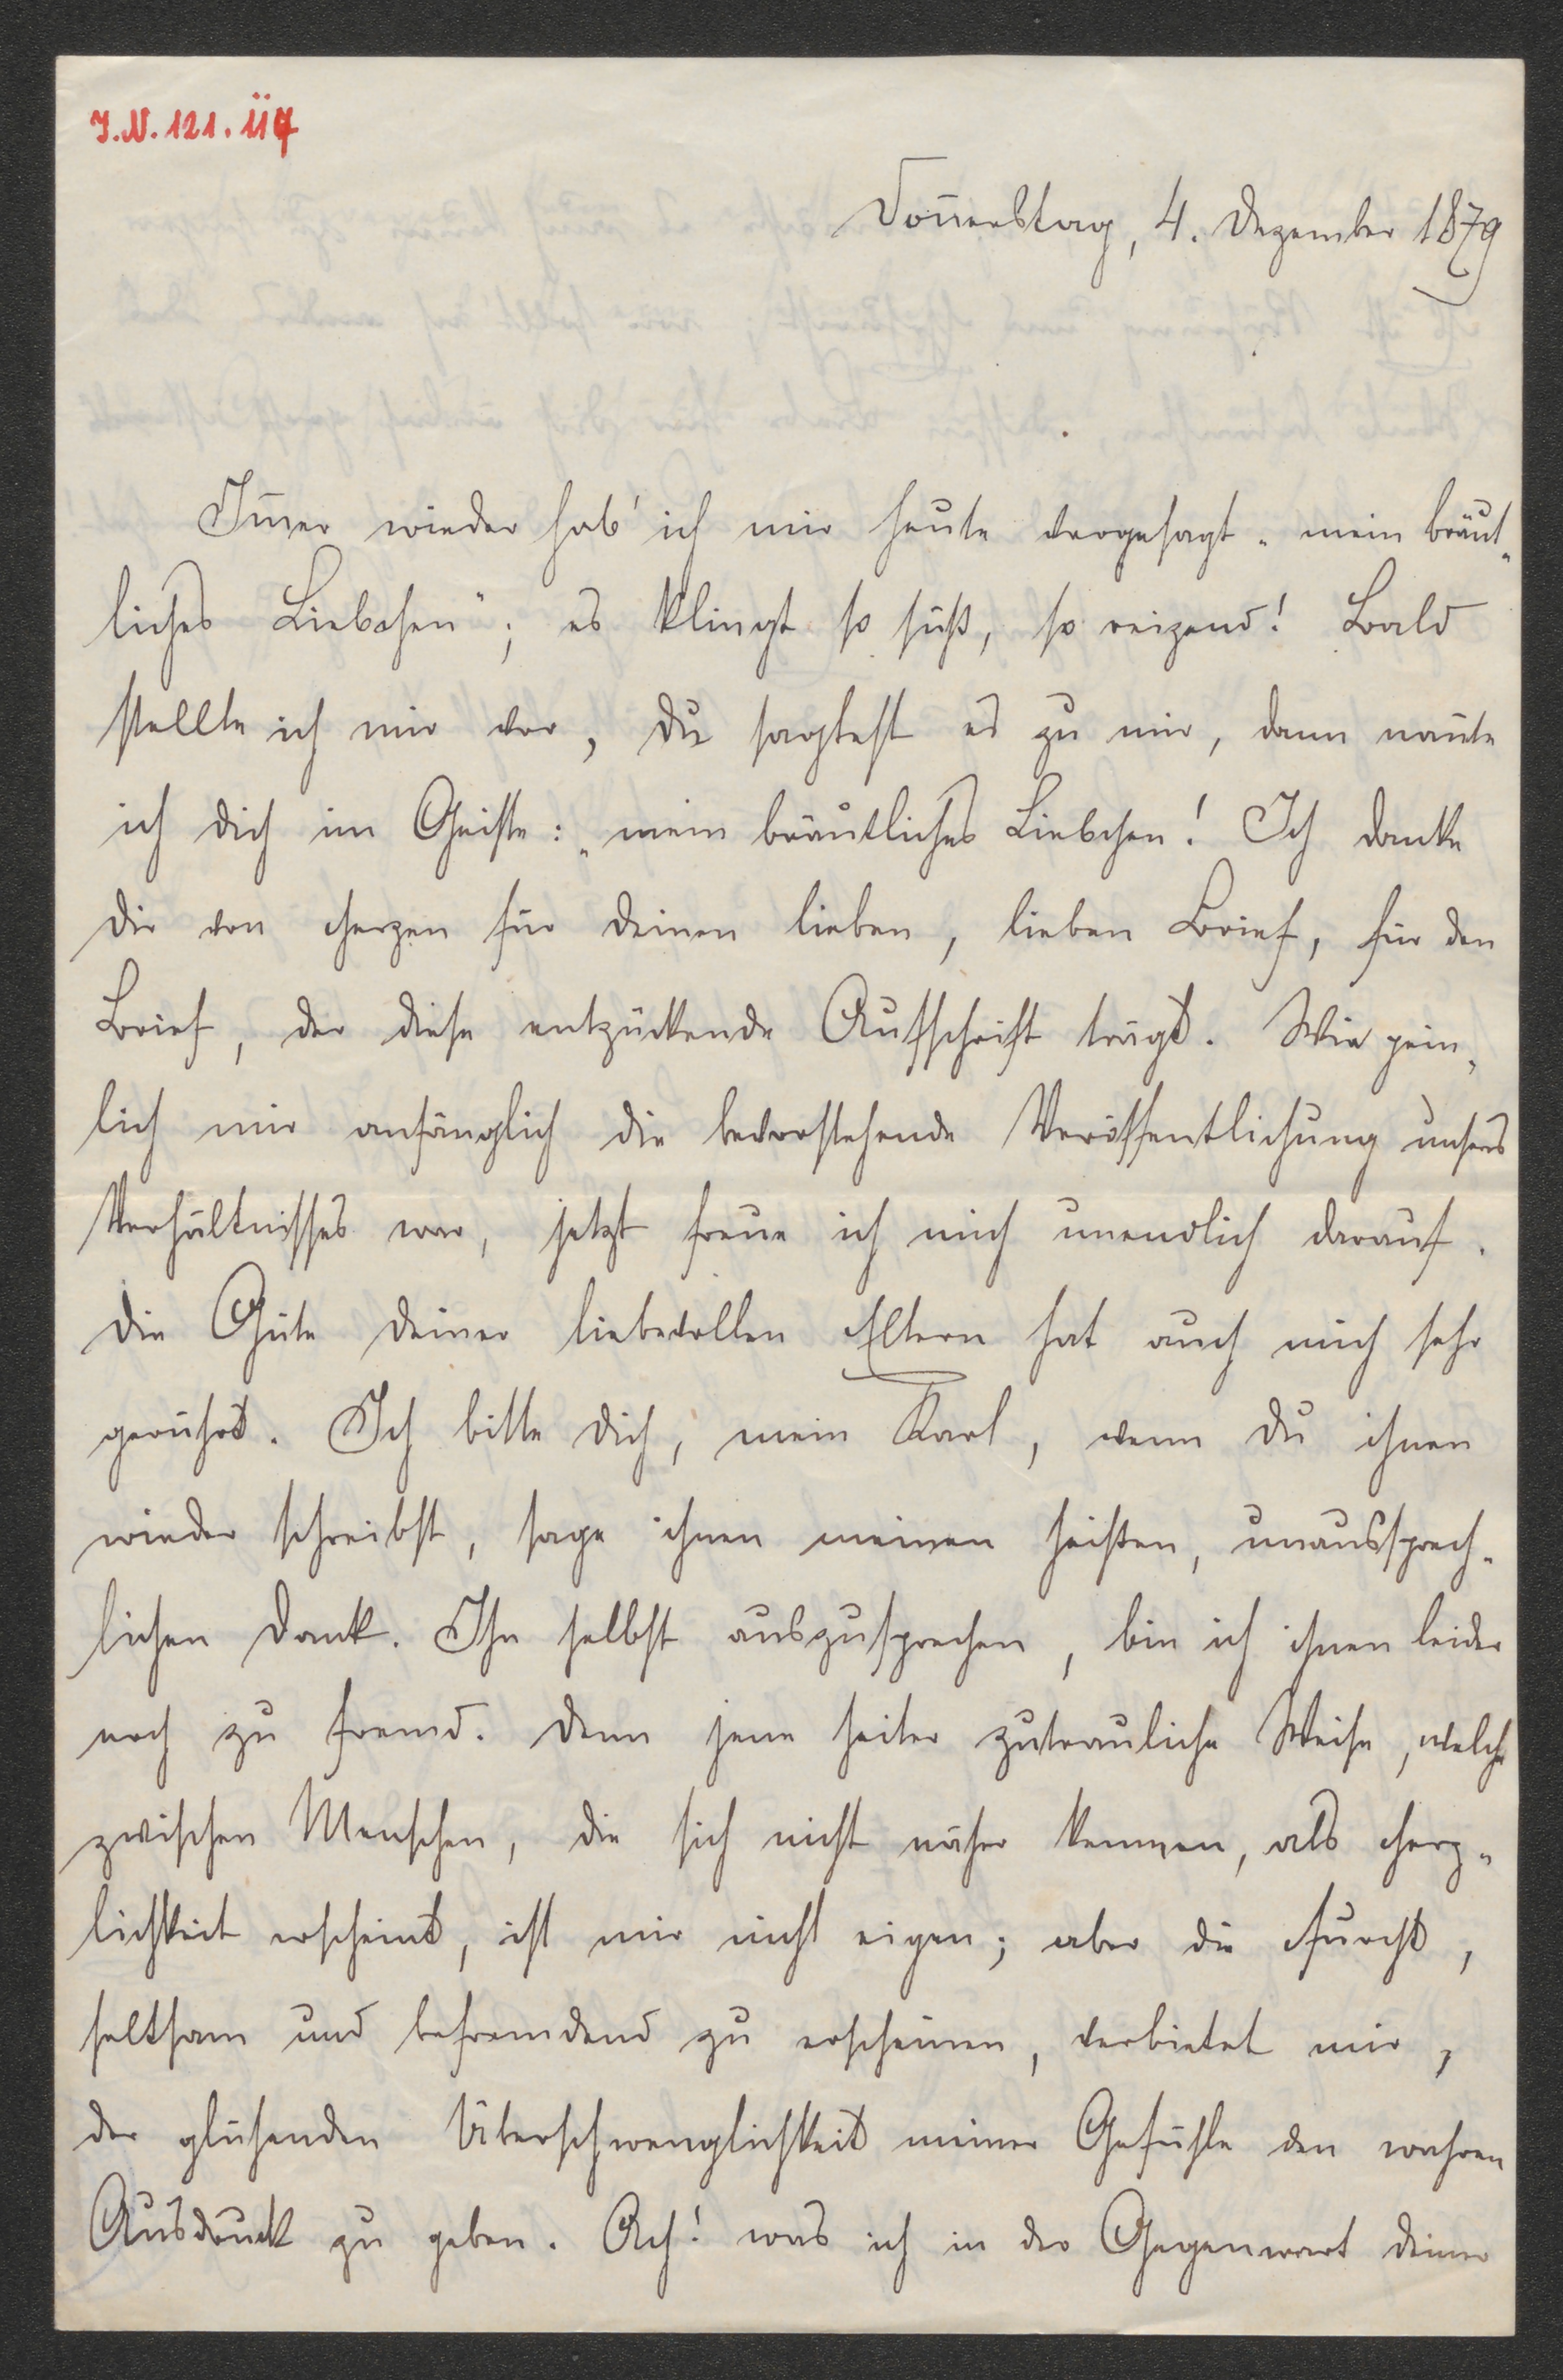 I.N. 121.117
Donnerstag, 4. Dezember 1879
Im̄er wieder hab' ich mir heute vorgesagt „mein bräut„
liches Liebchen"; es klingt so süß, so reizend! Bald
stellte ich mir vor, Du sagtest es zu mir, dann nan̄te
ich Dich im Geiste: „mein bräutliches Liebchen! Ich danke
Dir von Herzen für Deinen lieben, lieben Brief, für den
Brief, der diese entzückende Aufschrift trägt. Wie pein„
lich mir anfänglich die bevorstehende Veröffentlichung unsers
Verhältnisses war, jetzt freue ich mich unendlich darauf.
Die Güte Deiner liebevollen Eltern hat auch mich sehr
gerührt. Ich bitte Dich, mein Karl, wenn Du ihnen
wieder schreibst, sage ihnen meinen heißen, unaussprech„
lichen Dank. Ihn selbst auszusprechen, bin ich ihnen leider
noch zu fremd. Denn jene heiter zutrauliche Weise, welche
zwischen Menschen, die sich nicht näher kennen, als Herz„
lichkeit erscheint, ist mir nicht eigen; aber die Furcht,
seltsam und befremdend zu erscheinen, verbietet mir,
der glühenden Überschwenglichkeit meiner Gefühle den wahren
Ausdruck zu geben. Ach! was ich in der Gegenwart Deiner